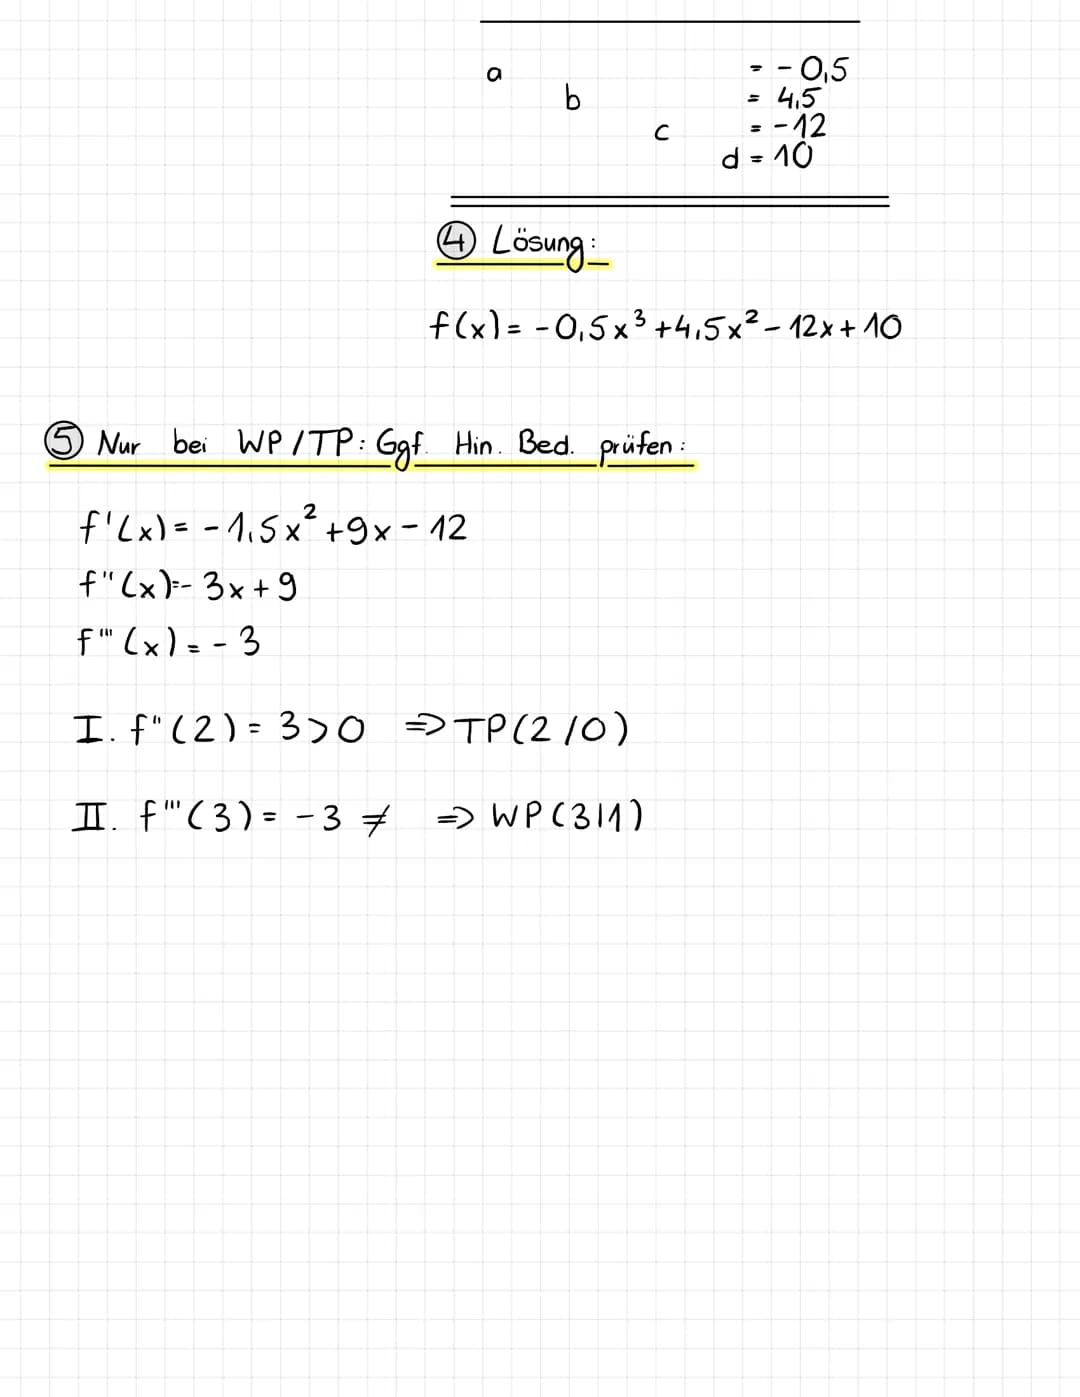 a = - 0,5
b = 4,5
c = - 12
d = 10
④ Lösung:
f(x) = - 0,5x³ + 4,5x² - 12x + 10
⑤ Nur bei WP/TP: Ggf. Hin. Bed. prüfen:
f'(x) = - 1,5x² + 9x - 12
f"(x) = - 3x + 9
f'''(x) = - 3
I. f"(2) = 3 > 0 ⇒ TP(2/0)
II. f'''(3) = - 3 ≠ ⇒ WP(3|1)